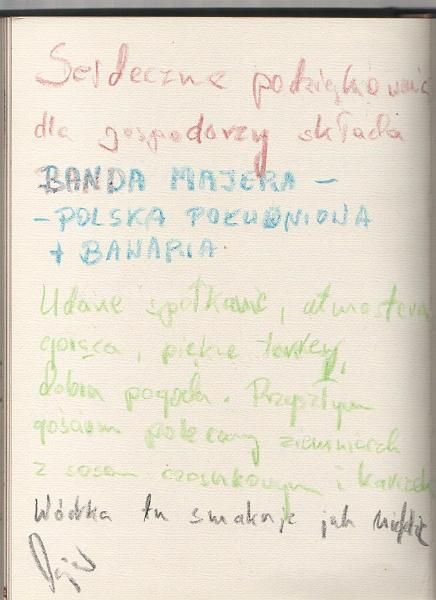 Serdeczne podziękowanie
dla gospodarzy składa
BANDA MAJERA –
– POLSKA POŁUDNIOWA
+ BAWARIA.
Udane spotkanie, atmosfera
gorąca, piękne tereny,
dobra pogoda. Przyszłym
gościom polecamy ziemniaczki
z sosem czosnkowym i karczek
Wódka tu smakuje jak nigdzie